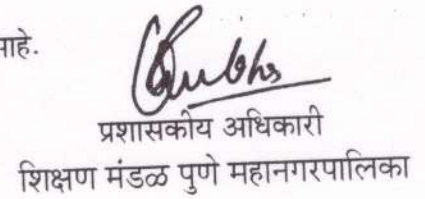 आहे.
प्रशासकीय अधिकारी
शिक्षण मंडळ पुणे महानगरपालिका